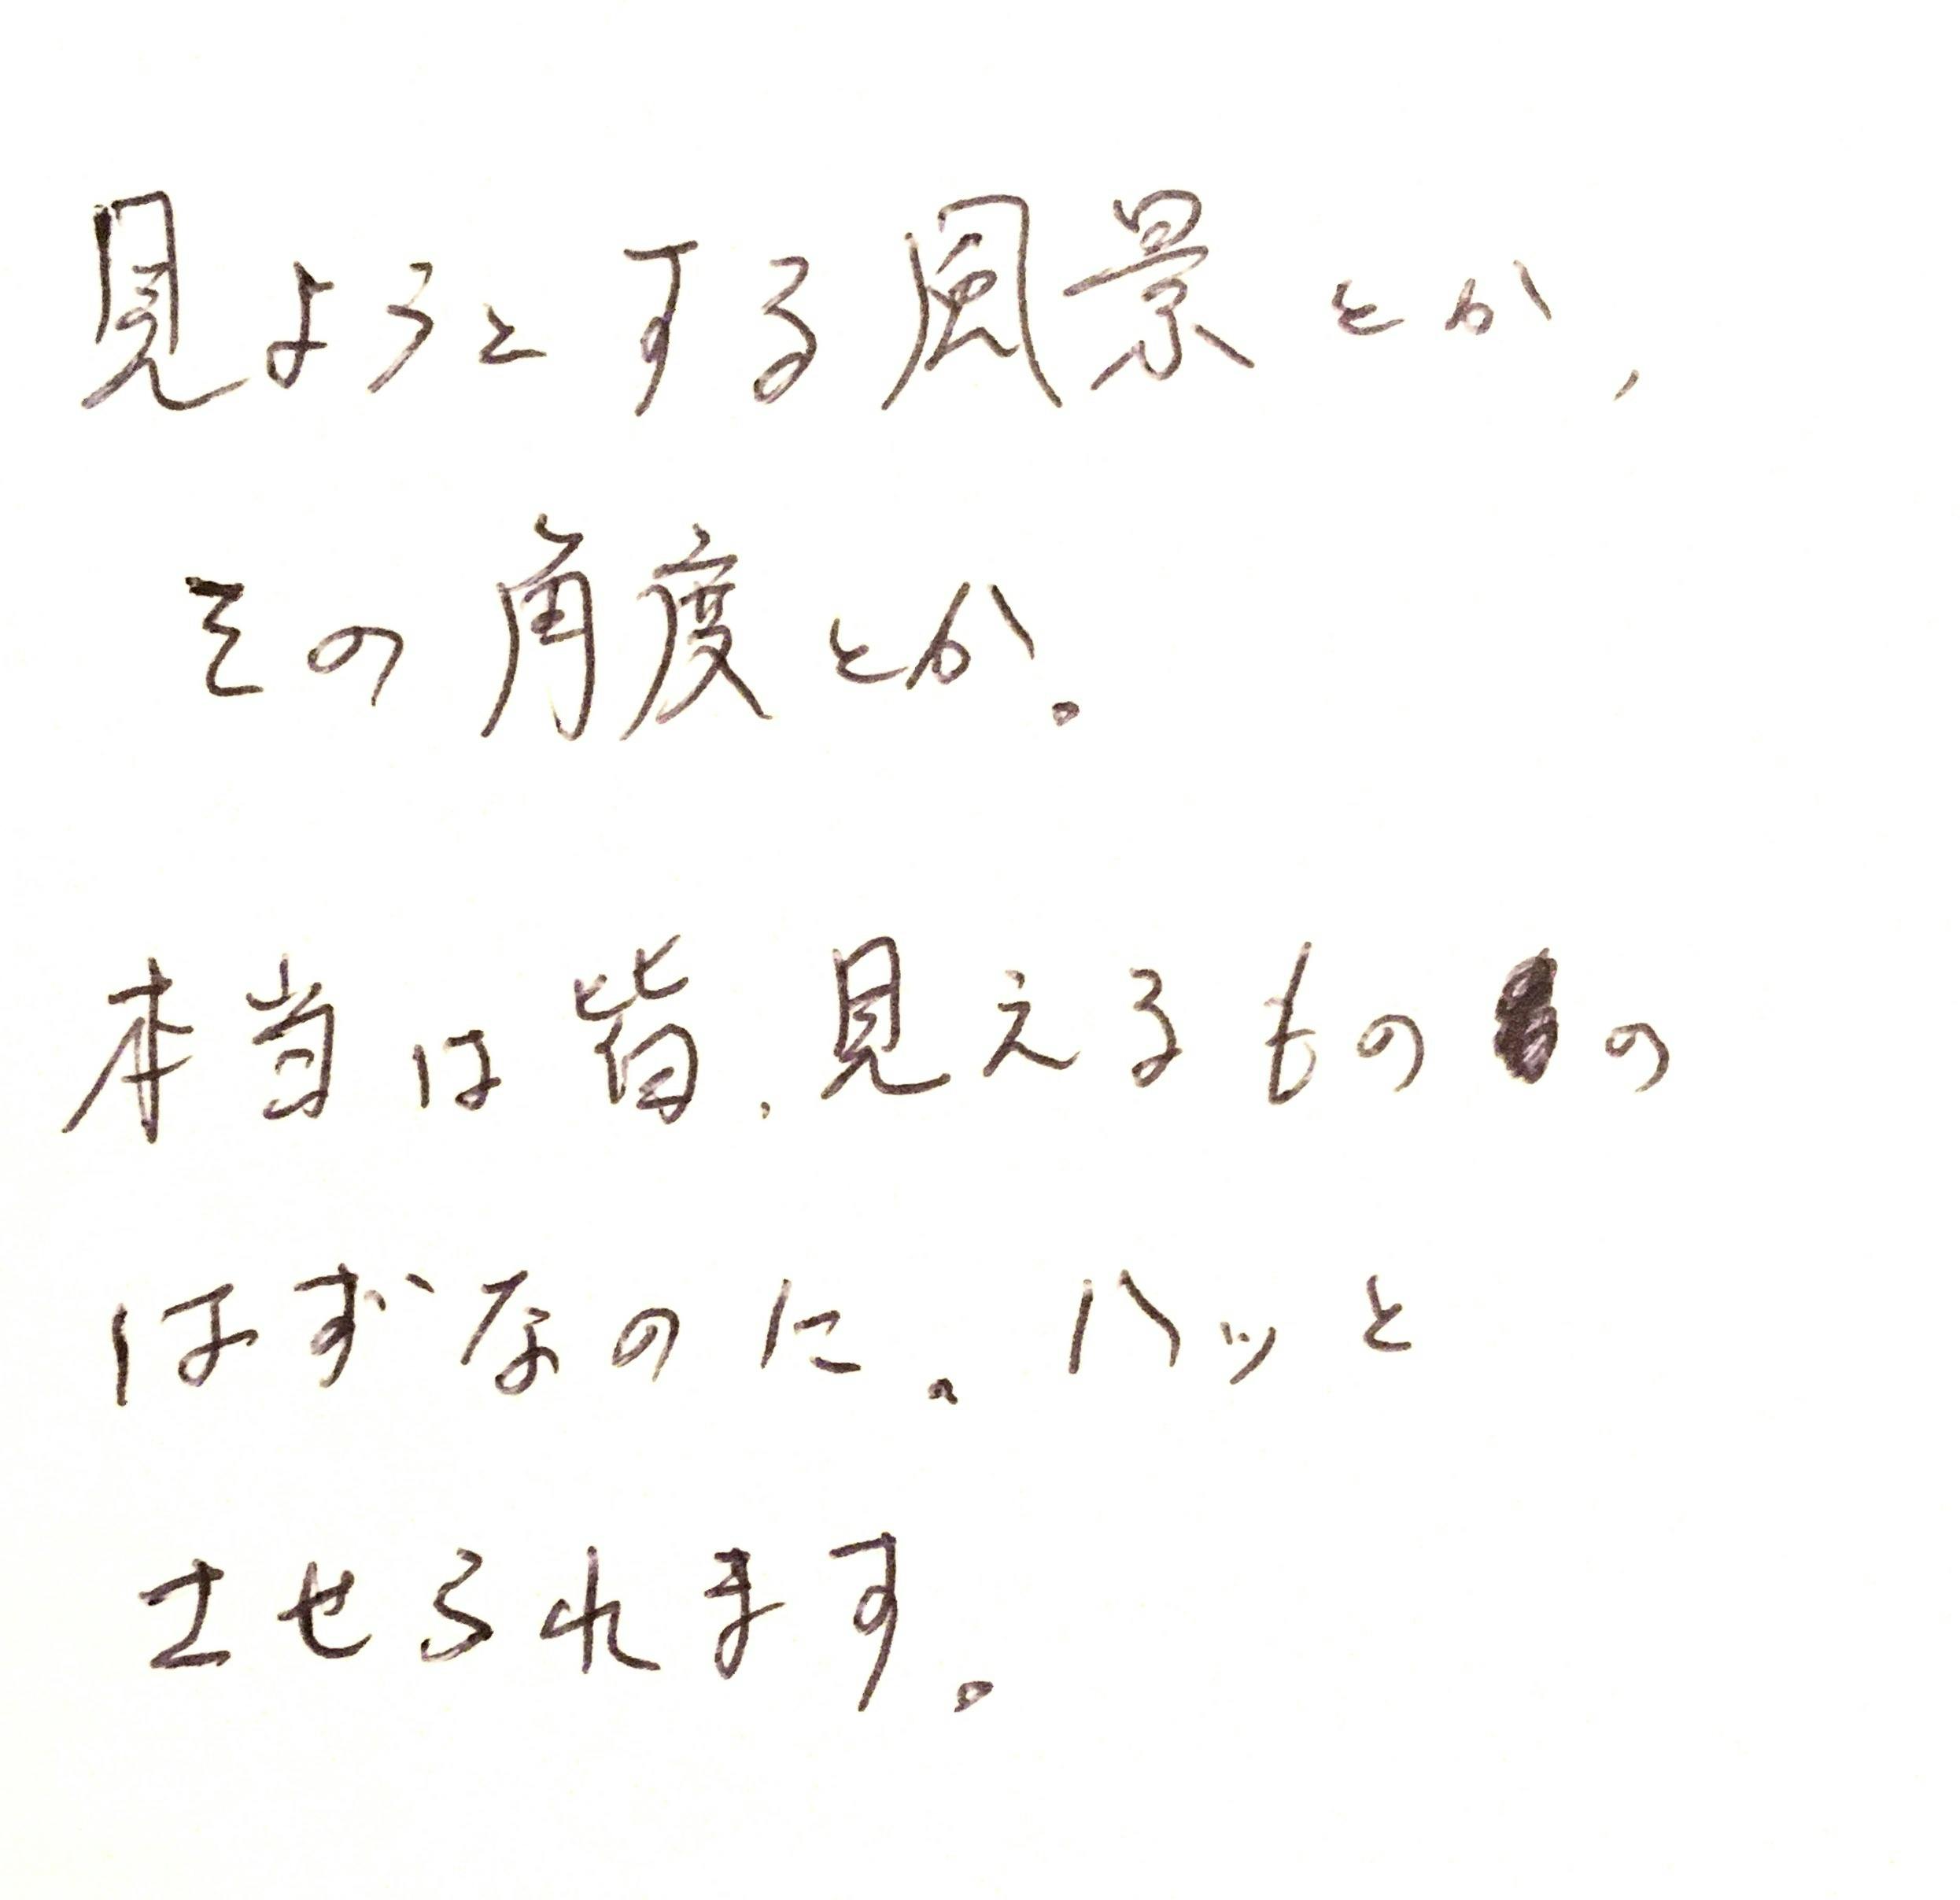 見ようとする風景とか、
その角度とか。
本当は皆、見えるものの
はずなのに。ハッと
させられます。